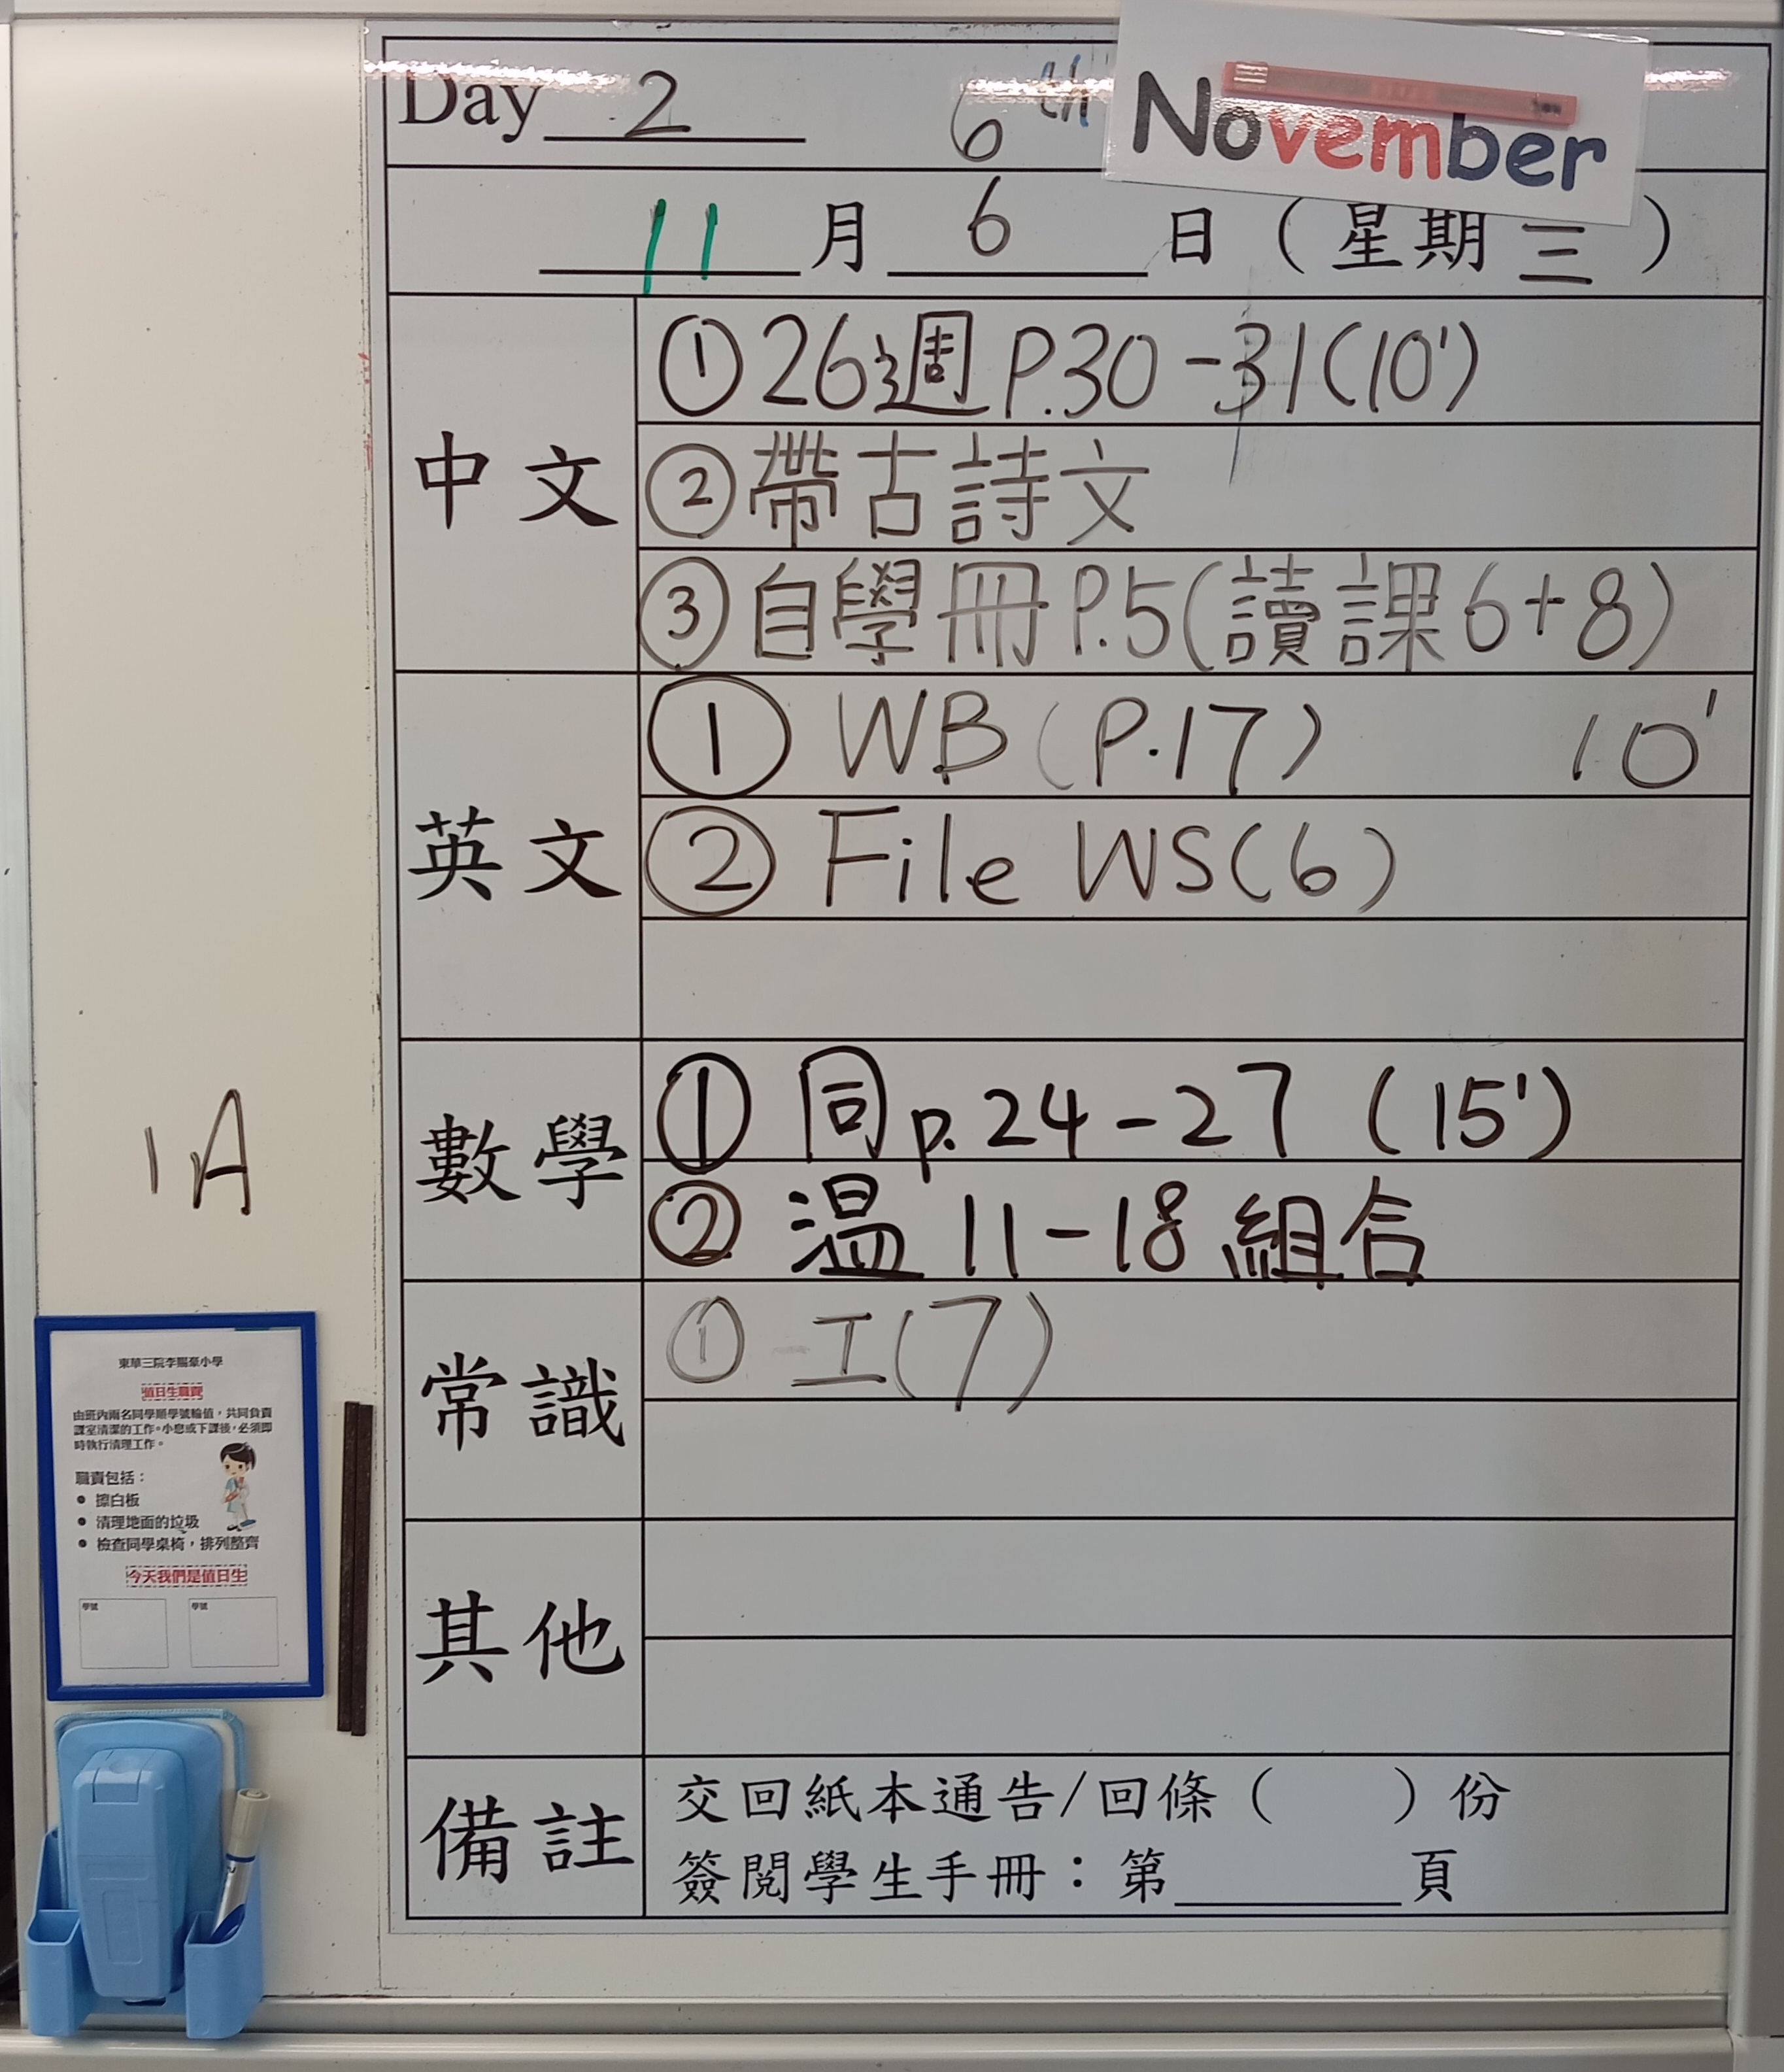 Day 2 6th November
11 月 6 日 ( 星期 三 )
中文
①26週 P.30-31(10')
②帶古詩文
③自學冊P.5(讀課6+8)
英文
① WB (P.17) 10'
② File WS(6)
數學
① 同 p.24-27 (15')
② 溫 11-18 組合
常識
① 工(7)
其他
備註
交回紙本通告/回條 ( ) 份
簽閱學生手冊：第______頁
1A
東華三院李賜豪小學
值日生職責
由班內兩名同學順學號輪值，共同負責
課室清潔的工作。小息或下課後，必須即
時執行清理工作。
職責包括：
• 擦白板
• 清理地面的垃圾
• 檢查同學桌椅，排列整齊
今天我們是值日生
學號 學號